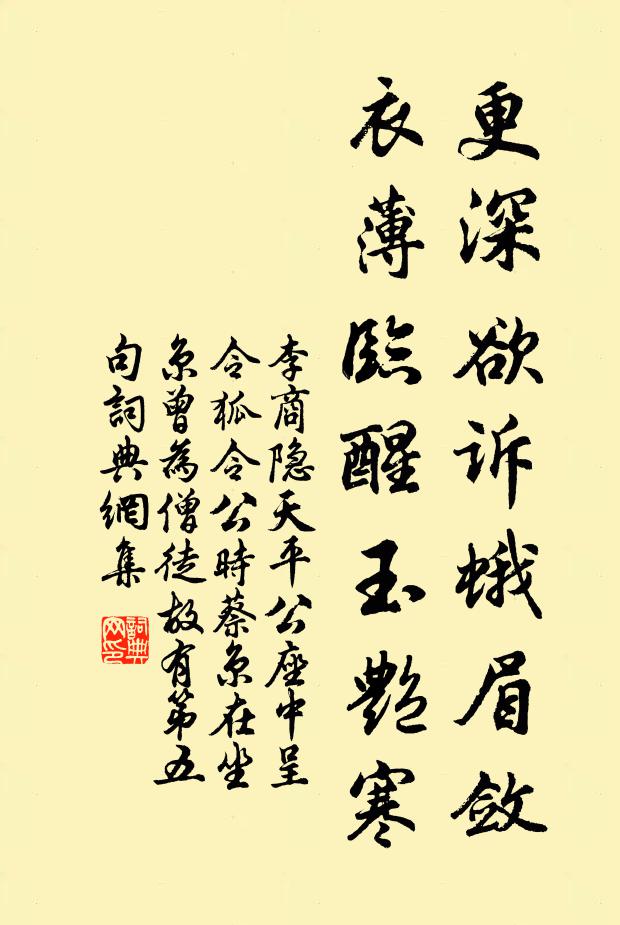 更深欲诉蛾眉敛
衣薄臨醒玉艶寒
李商隐天平公座中呈
令狐令公時蔡京在坐
京曾為僧徒故有第五
句詞典網集
詞典
网印